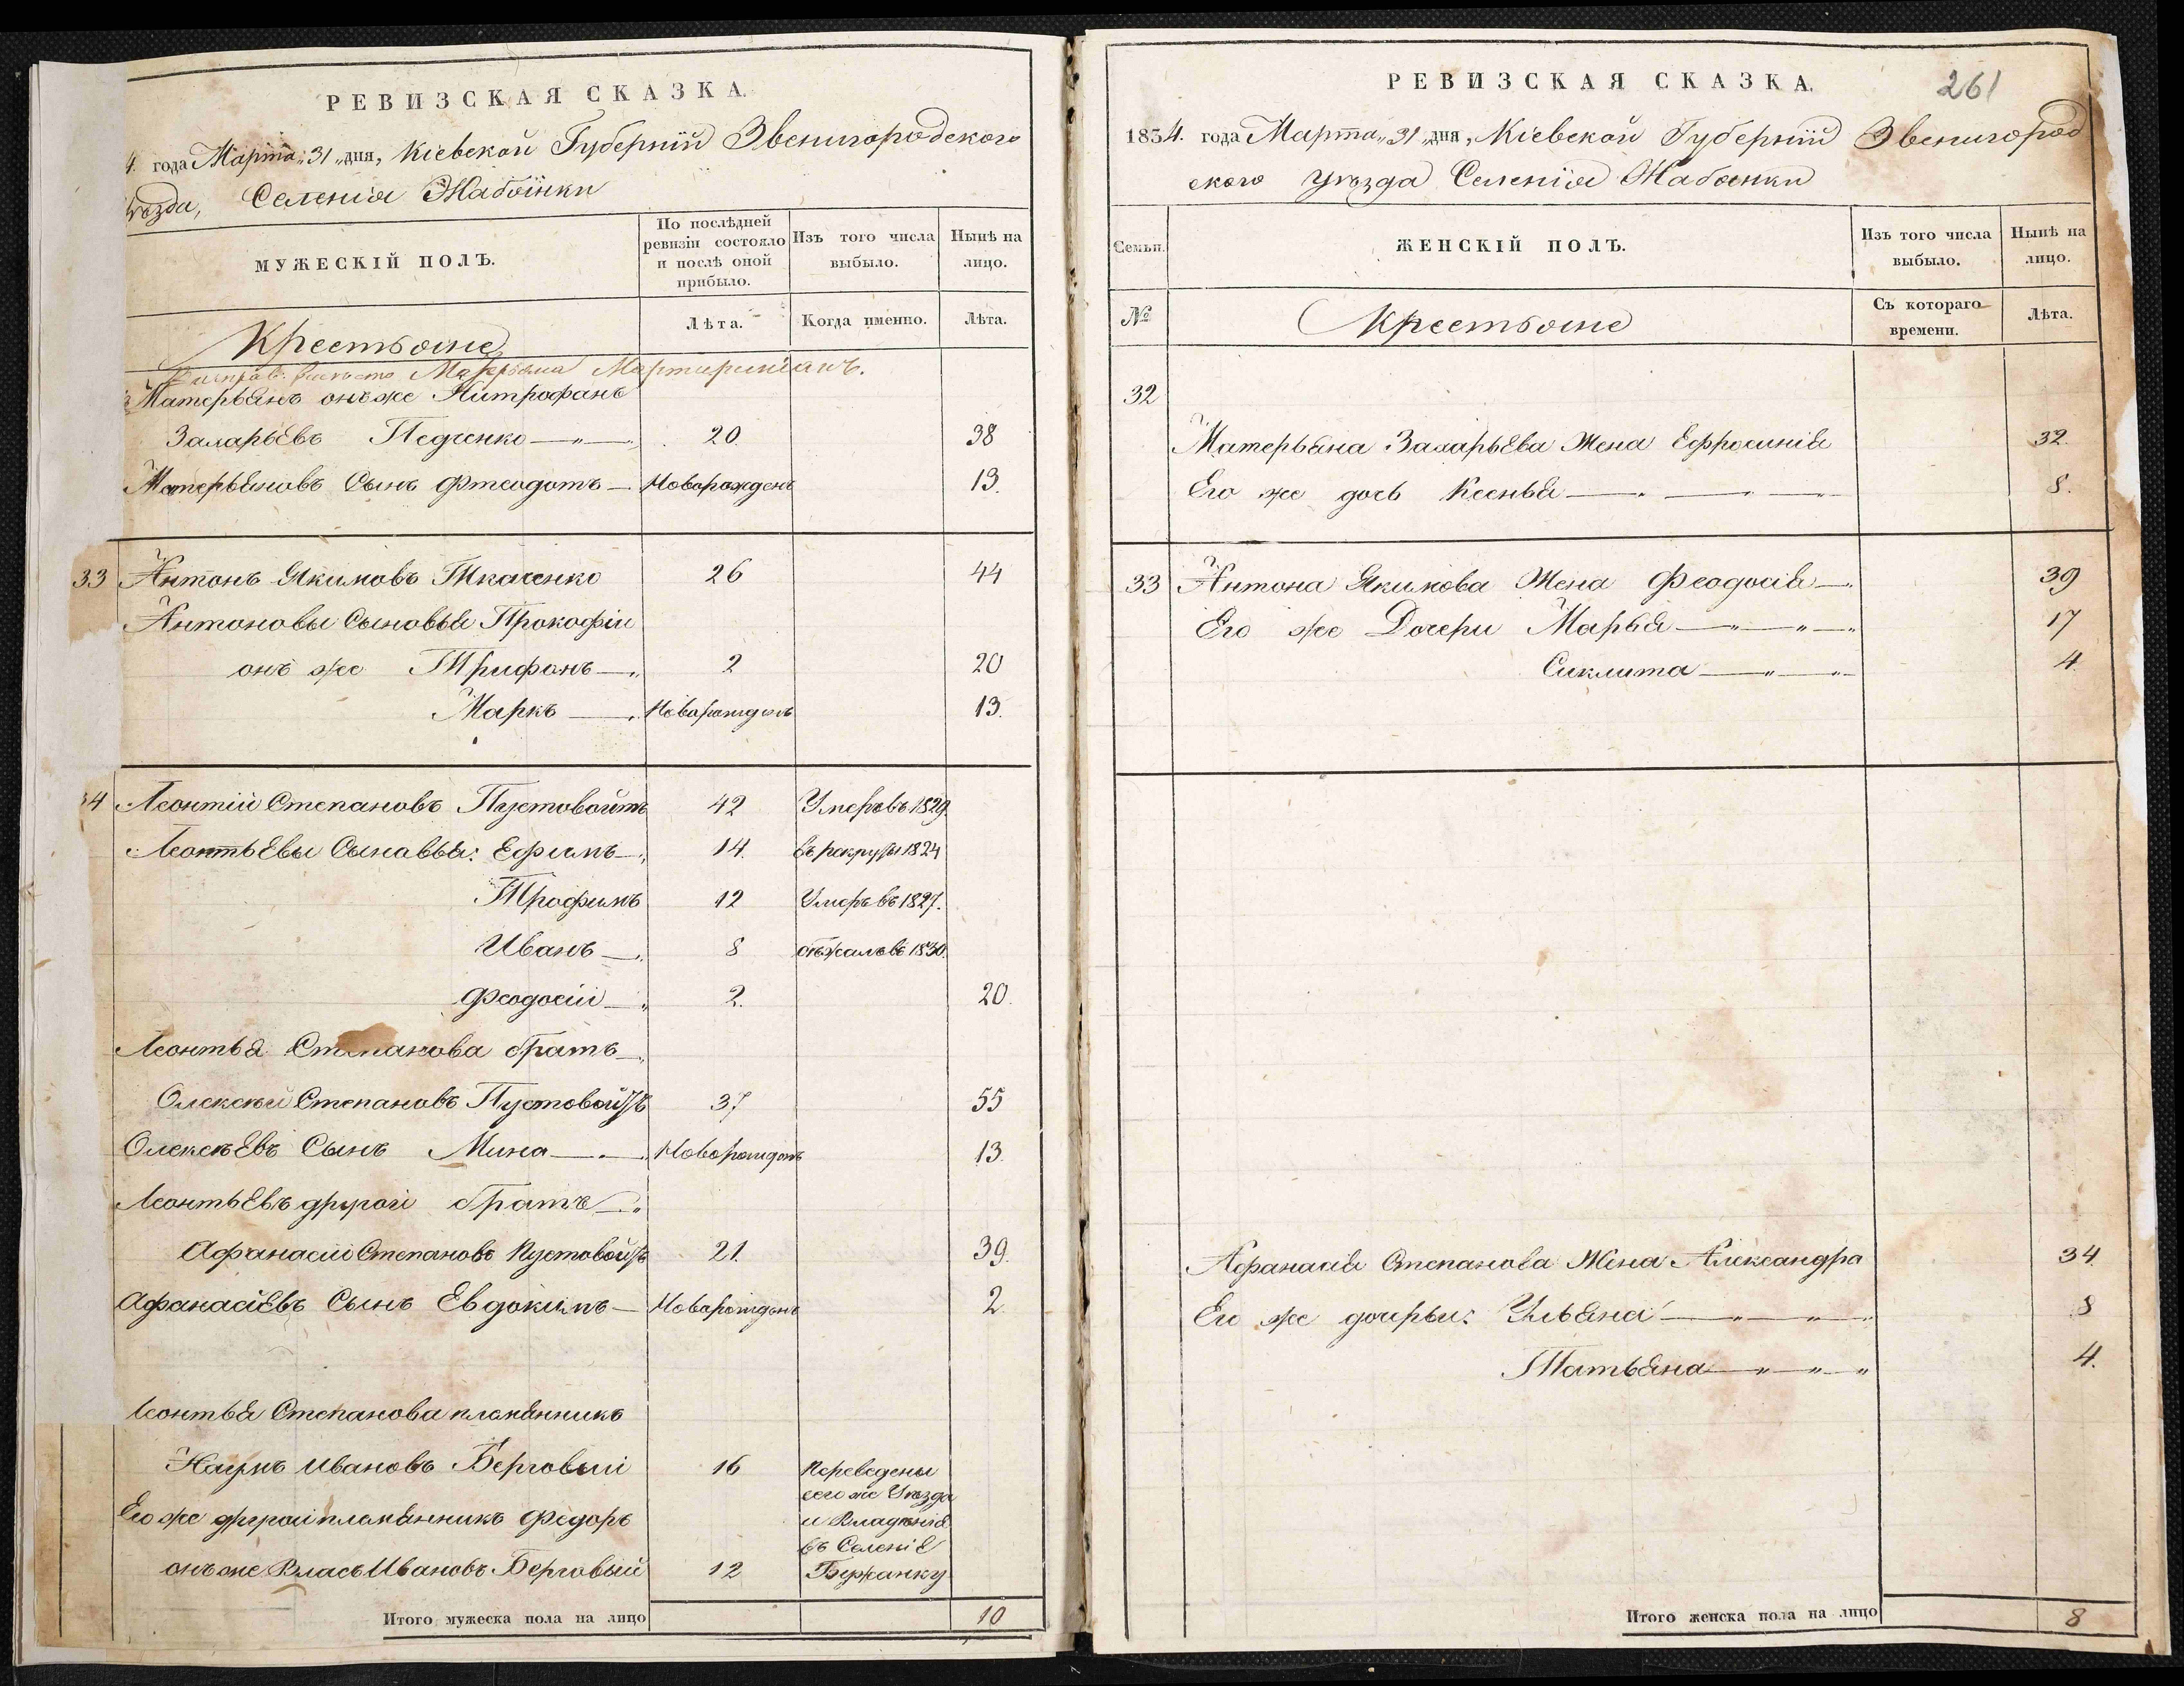 РЕВИЗСКАЯ СКАЗКА.
4. года Марта „31„ дня, Кіевской Губерніи Звенигородского
уѣзда, Селенія Жабоинки
МУЖЕСКІЙ ПОЛЪ.
По послѣдней ревизіи состояло и послѣ оной прибыло.
Изъ того числа выбыло.
Нынѣ на лицо.
Лѣта.
Когда именно.
Лѣта.
Крестьяне
вмѣсто Матерьяна Мартириніанъ.
Матерьянъ онъ же Митрофанъ
Захарьевъ Педченко 20 38
Матерьяновъ Сынъ Фтеодотъ Новорожденъ 13.
33 Антонъ Якимовъ Ткаченко 26 44
Антоновы Сыновья Прокофіи
онъ же Трифонъ 2 20
Маркъ Новорожденъ 13.
34 Леонтій Степановъ Пустовойтъ 42 Умеръ въ 1829.
Леонтьевы Сыновья: Ефимъ 14. въ рекруты 1824
Трофимъ 12 Умеръ въ 1827.
Иванъ 8 бѣжалъ въ 1830.
Феодосіи 2. 20.
Леонтья Степанова братъ
Олексѣй Степановъ Пустовойтъ 37 55
Олексѣевъ Сынъ Мина Новорожденъ 13.
Леонтьевъ другоі братъ
Афанасіи Степановъ Пустовойтъ 21. 39.
Афанасіевъ Сынъ Евдокимъ Новорожденъ 2
Леонтья Степанова племянникъ
Наумъ Ивановъ Берговыі 16 Переведены
сего же Уѣзда
Его же другои племянникъ Федоръ и Владѣнія
въ Селеніе
онъ же Власъ Ивановъ Берговый 12 Бужанку
Итого мужеска пола на лицо 10
РЕВИЗСКАЯ СКАЗКА. 261
1834. года Марта „31„ дня, Кіевской Губерніи Звенигород
ского Уѣзда Селенія Жабоинки
Семьи.
ЖЕНСКІЙ ПОЛЪ.
Изъ того числа выбыло.
Нынѣ на лицо.
№
Крестьяне
Съ котораго времени.
Лѣта.
32
Матерьяна Захарьева Жена Ефросинія 32.
Его же дочь Ксенья 8.
33 Антона Якимова Жена Феодосія 39
Его же Дочери Марья 17
Сиклита 4.
Афанасія Степанова Жена Александра 34.
Его же дочерьи: Ульяна 8
Татьяна 4.
Итого женска пола на лицо 8